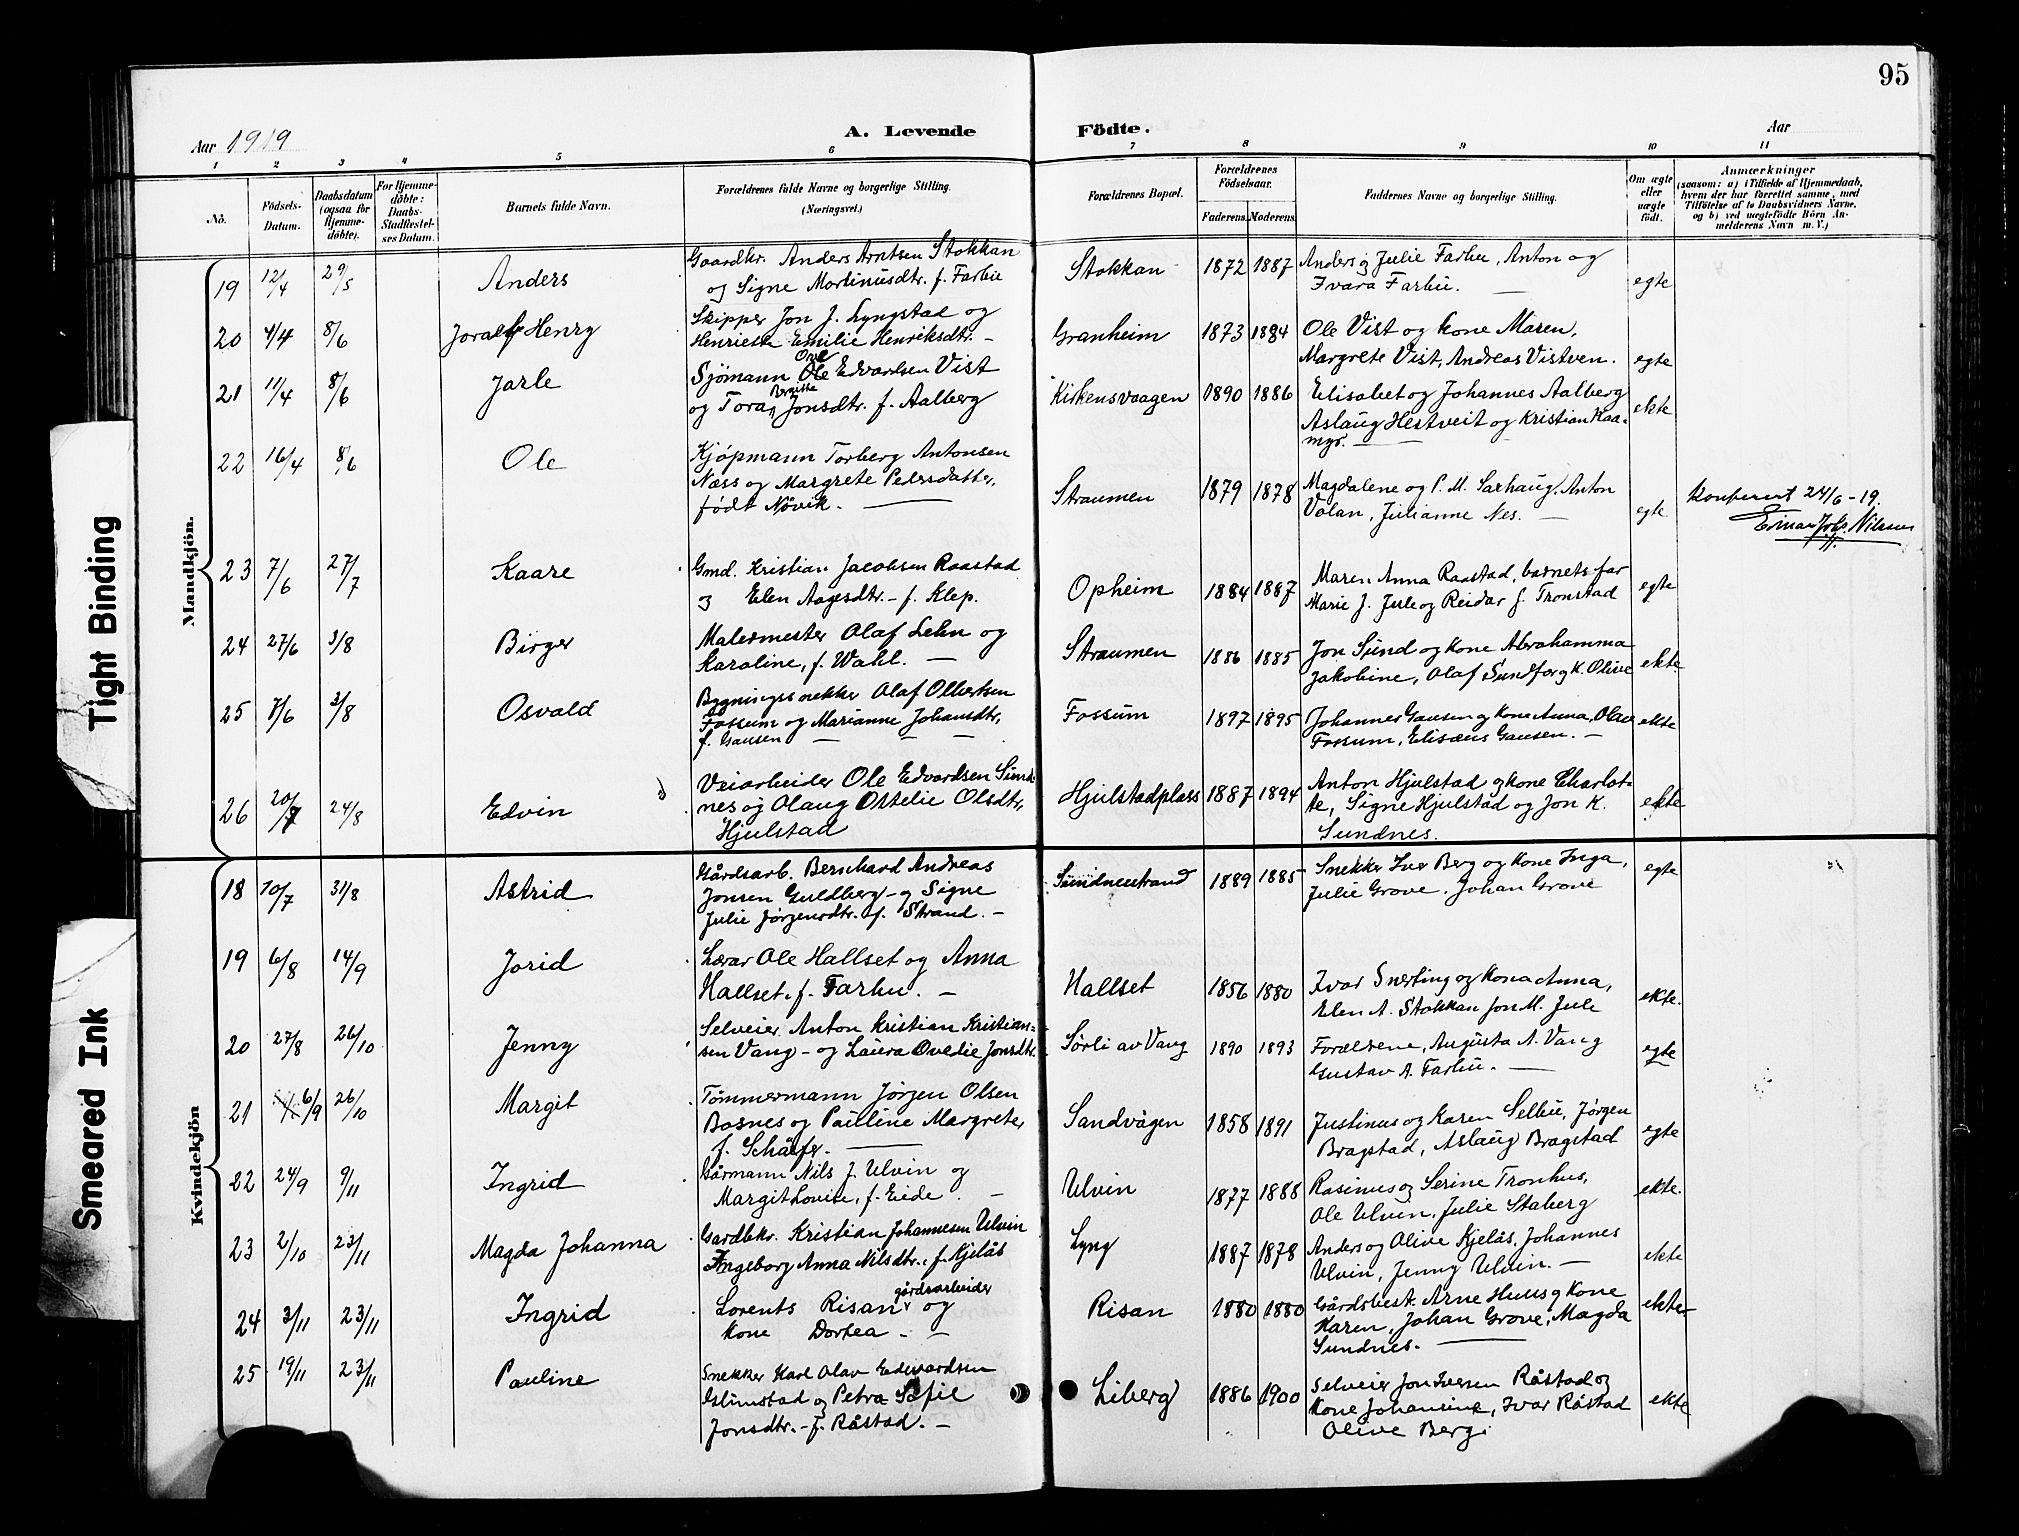 95
Aar 1919
A. Levende Födte.
Aar
1 2 3 4 5 6 7 8 9 10 11
No.
Födsels-Datum.
Daabsdatum (ogsaa for Hjemmedöbte).
For Hjemmedöbte: Daabs-Stadfæstelses Datum.
Barnets fulde Navn.
Forældrenes fulde Navne og borgerlige Stilling. (Næringsvei.)
Forældrenes Bopæl.
Forældrenes Födselsaar.
Faderens. Moderens.
Faddernes Navne og borgerlige Stilling.
Om ægte eller uægte födt.
Anmærkninger
(saasom: a) i Tilfælde af Hjemmedaab, hvem der har forrettet samme, med Tilföielse af to Daabsvidners Navne, og b) ved uægtefödte Börn Anmelderens Navn m. V.)
Mandkjön.
19 12/4 29/5 Anders
Gaardbr. Anders Arntsen Stokkan
og Signe Martinusdtr. f. Farbu
Stokkan 1872 1887
Anders og Julie Farbu, Anton og
Ivara Farbu. —
egte
20 4/4 8/6 Joralf Henry
Skipper Jon J. Lyngstad og
Henriette Emilie Henriksdtr. —
Granheim 1873 1884
Ole Vist og kone Maren,
Margrete Vist, Andreas Vistven.
egte
21 11/4 8/6 Jarle
Sjömann Ole Edvardsen Vist
og Tora Jonsdtr. f. Aalberg
Kirkensvaagen 1890 1886
Elisabet og Johannes Aalberg
Aslaug Hestveit og Kristian Kaa-
myr. —
ekte
22 16/4 8/6 Ole
Kjøpmann Torberg Antonsen
Næss og Margrete Petersdatter,
født Növik. —
Straumen 1879 1878
Magdalene og P. M. Saxhaug, Anton
Volan, Julianne Nes. —
egte
konferert 24/6 - 19.
23 7/6 27/7 Kaare
Gmd. Kristian Jacobsen Raastad
og Elen Aagesdtr. - f. Klep.
Opheim 1884 1887
Maren Anna Raastad, barnets far
Marie J. Jule og Reidar J. Tronstad
egte
24 27/6 3/8 Birger
Malermester Olaf Lehn og
Karoline, f. Wahl. —
Straumen 1886 1885
Jon Sund og kone Abrahamma
Jakobine, Olaf Sundfor og K. Olive
ekte
25 7/6 3/8 Osvald
Bygningssnekker Olaf Olbertsen
Fossum og Marianne Johansdtr,
f. Gausen — — —
Fossum 1897 1895
Johannes Gausen og kone Anna, Olav
Fossum, Elisæus Gausen. —
ekte
26 20/7 24/8 Edvin
Veiarbeider Ole Edvardsen Sund-
nes og Olaug Ottelie Olsdtr,
Hjulstad
Hjulstadplass 1887 1894
Anton Hjulstad og kone Charlot-
te, Signe Hjulstad og Jon K.
Sundnes.
ekte
Kvindekjön
18 10/7 31/8 Astrid
Gårdsarb. Bernhard Andreas
Jonsen Guldberg - og Signe
Julie Jørgensdtr. f. Strand. —
Sundnesstrand 1889 1885
Snekker Iver Berg og kone Inga,
Julie Grove, Johan Grove
egte
19 6/8 14/9 Jorid
Lærar Ole Hallset og Anna
Hallset, f. Farbu. —
Hallset 1856 1880
Ivar Snerting og kona Anna,
Elen A. Stokkan Jon M. Jule
ekte.
20 27/8 26/10 Jenny
Selveier Anton Kristian Kristian-
sen Vang - og Laura Ovedie Jonsdtr.
Sørli av Vang 1890 1893
Forældrene, Augusta A. Vang
Gustav A. Farbu. —
egte
21 6/9 26/10 Margit
Tömmermann Jørgen Olsen
Bosnes og Pauline Margrete,
f. Schäfer. —
Sandvågen 1858 1891
Justinus og Karen Selbu, Jörgen
Bragstad, Aslaug Bragstad
egte
22 24/9 9/11 Ingrid
Gårmann Nils J. Ulvin og
Margit Lovise, f. Eide. —
Ulvin 1877 1888
Rasinus og Serine Tronhus,
Ole Ulvin, Julie Staberg
ekte.
23 2/10 23/11 Magda Johanna
Gardbkr. Kristian Johannesen Ulvin
Ingeborg Anna Nilsdtr. f. Kjelås
Lyng 1887 1878
Anders og Olive Kjelås, Johannes
Ulvin, Jenny Ulvin. —
ekte
24 3/11 23/11 Ingrid
gårdsarbeider
Lorents Risan og
kone Dortea - —
Risan 1880 1880
Gårdsbest. Arne Huus og kone
Karen, Johan Grove, Magda
Sundnes. —
ekte
25 19/11 23/11 Pauline
Snekker Karl Olav Eedvardsen
Glimstad og Petra Sofie
Jonsdtr. - f. Råstad. —
Liberg 1886 1900
Selveier Jon Iversen Råstad og
kone Johansine, Ivar Råstad
Olive Berg.
ekte
Tight Binding
Smeared Ink